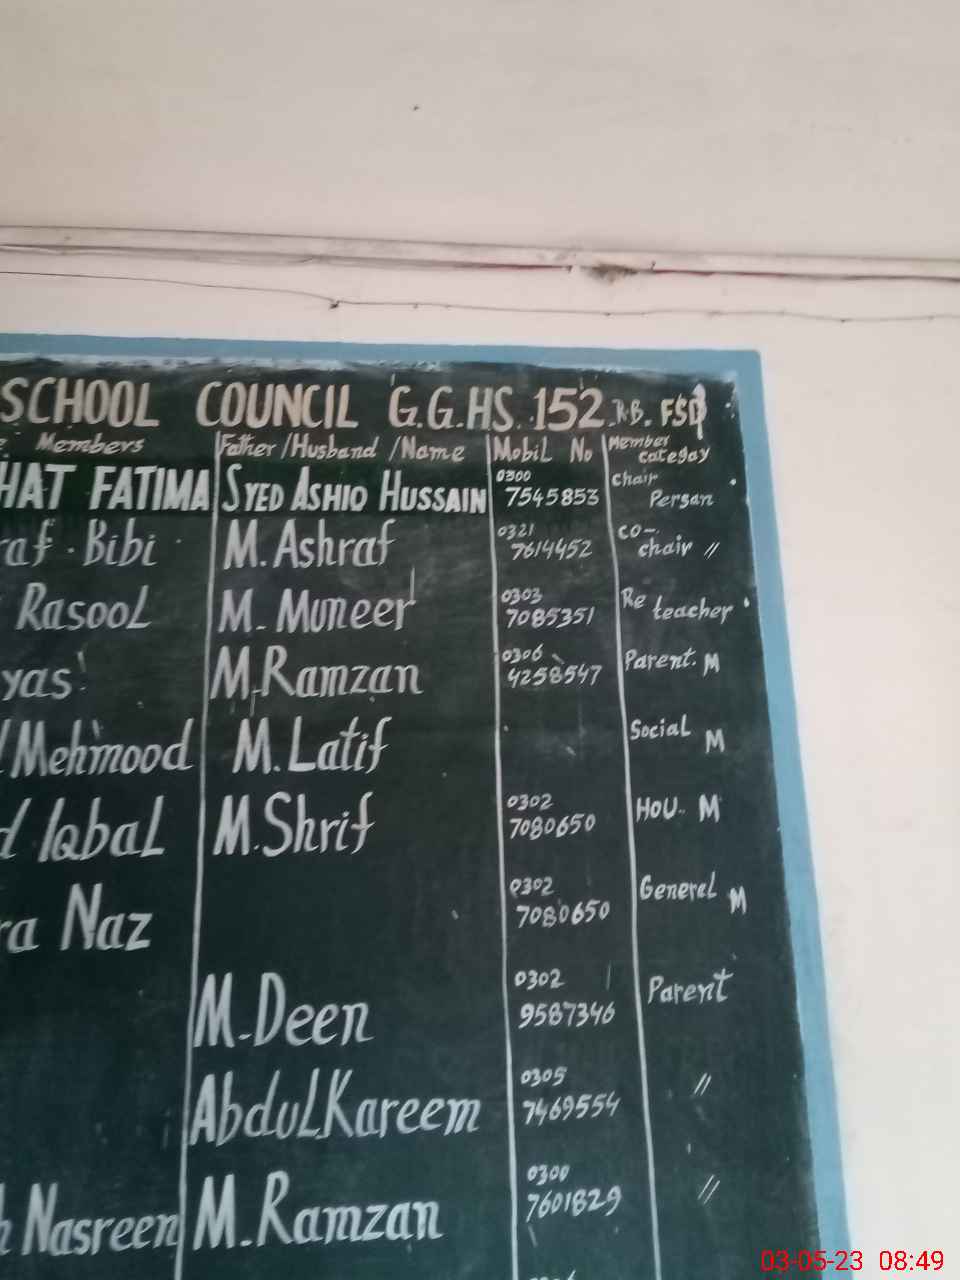 SCHOOL COUNCIL G.G.HS. 152 R.B. FSD
Members Father/Husband/Name Mobil No Member categay
HAT FATIMA SYED ASHIQ HUSSAIN 0300 7545853 Chair Persan
raf. Bibi M. Ashraf 0321 7614452 co-chair //
Rasool M. Muneer 0303 7085351 Re teacher
yas M. Ramzan 0306 4258547 Parent. M
Mehmood M. Latif Social M
d Iqbal M. Shrif 0302 7080650 HOU. M
ra Naz 0302 7080650 General M
M. Deen 0302 9587346 Parent
Abdul Kareem 0305 7469554 //
h Nasreen M. Ramzan 0300 7601829 //
03-05-23 08:49